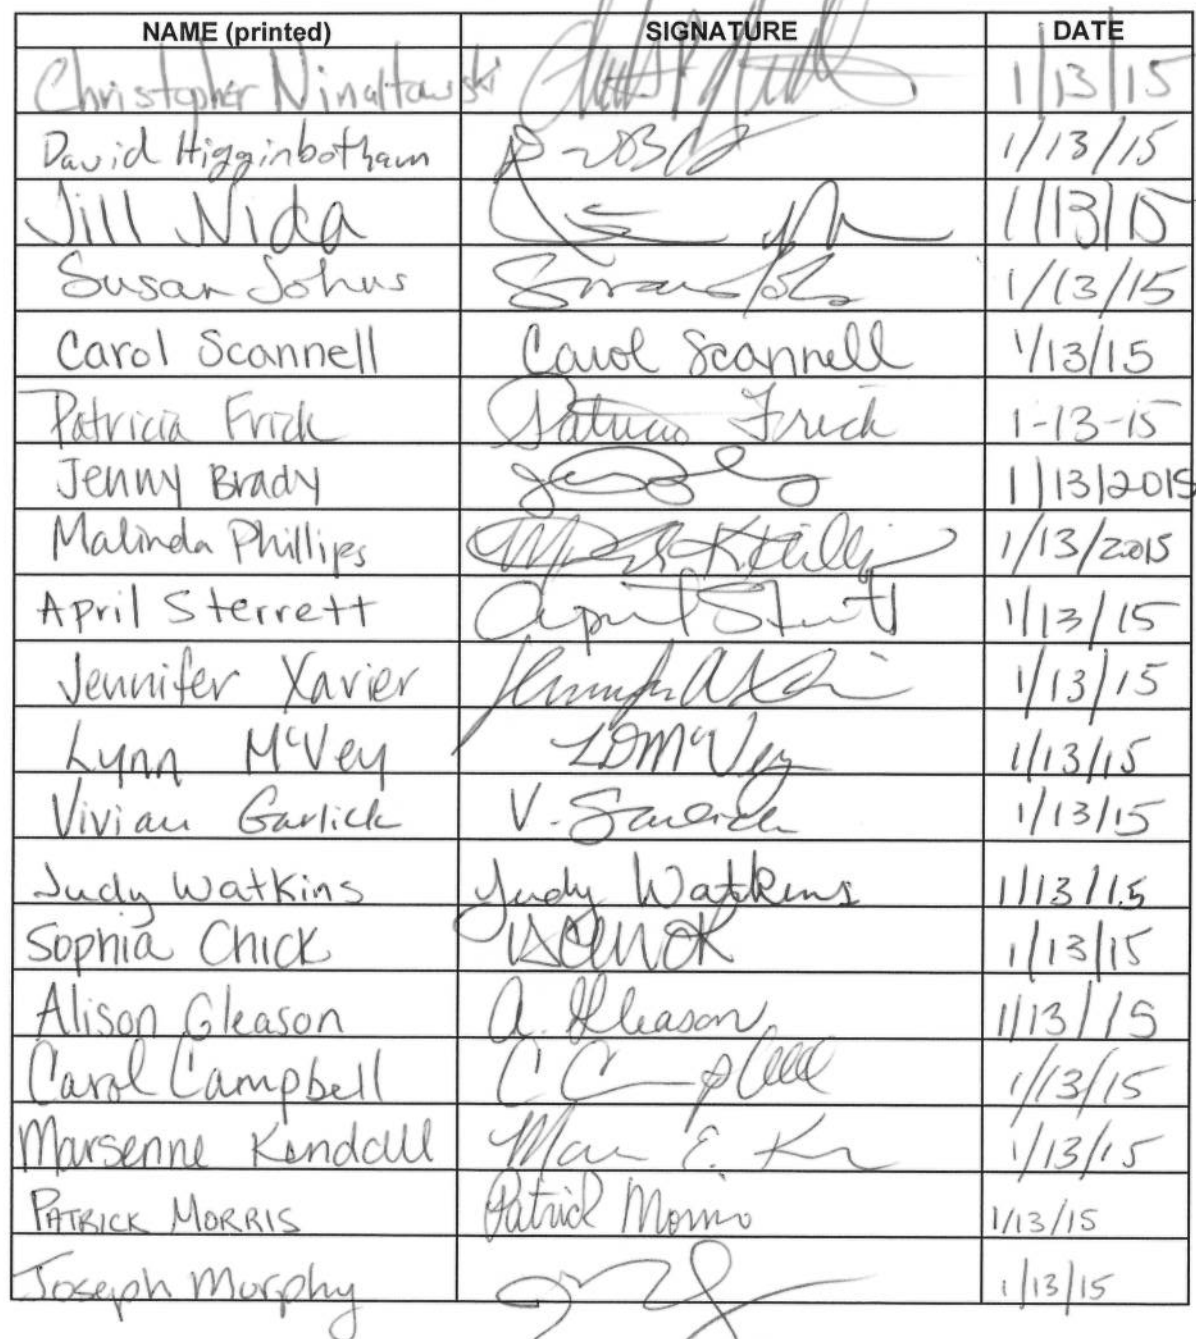 NAME (printed) SIGNATURE DATE
Christopher Ninaltowski 1/13/15
David Higginbotham 1/13/15
Jill Nida 1/13/15
Susan Johns Susan Johns 1/13/15
Carol Scannell Carol Scannell 1/13/15
Patricia Frick Patricia Frick 1-13-15
Jenny Brady 1/13/2015
Malinda Phillips 1/13/2015
April Sterrett April Sterrett 1/13/15
Jennifer Xavier Jennifer 1/13/15
Lynn McVey LDMcVey 1/13/15
Vivian Garlick V. Garlick 1/13/15
Judy Watkins Judy Watkins 1/13/15
Sophia Chick 1/13/15
Alison Gleason A. Gleason 1/13/15
Carol Campbell C Campbell 1/13/15
Marsenne Kendall E. 1/13/15
PATRICK MORRIS Patrick Morris 1/13/15
Joseph Murphy 1/13/15